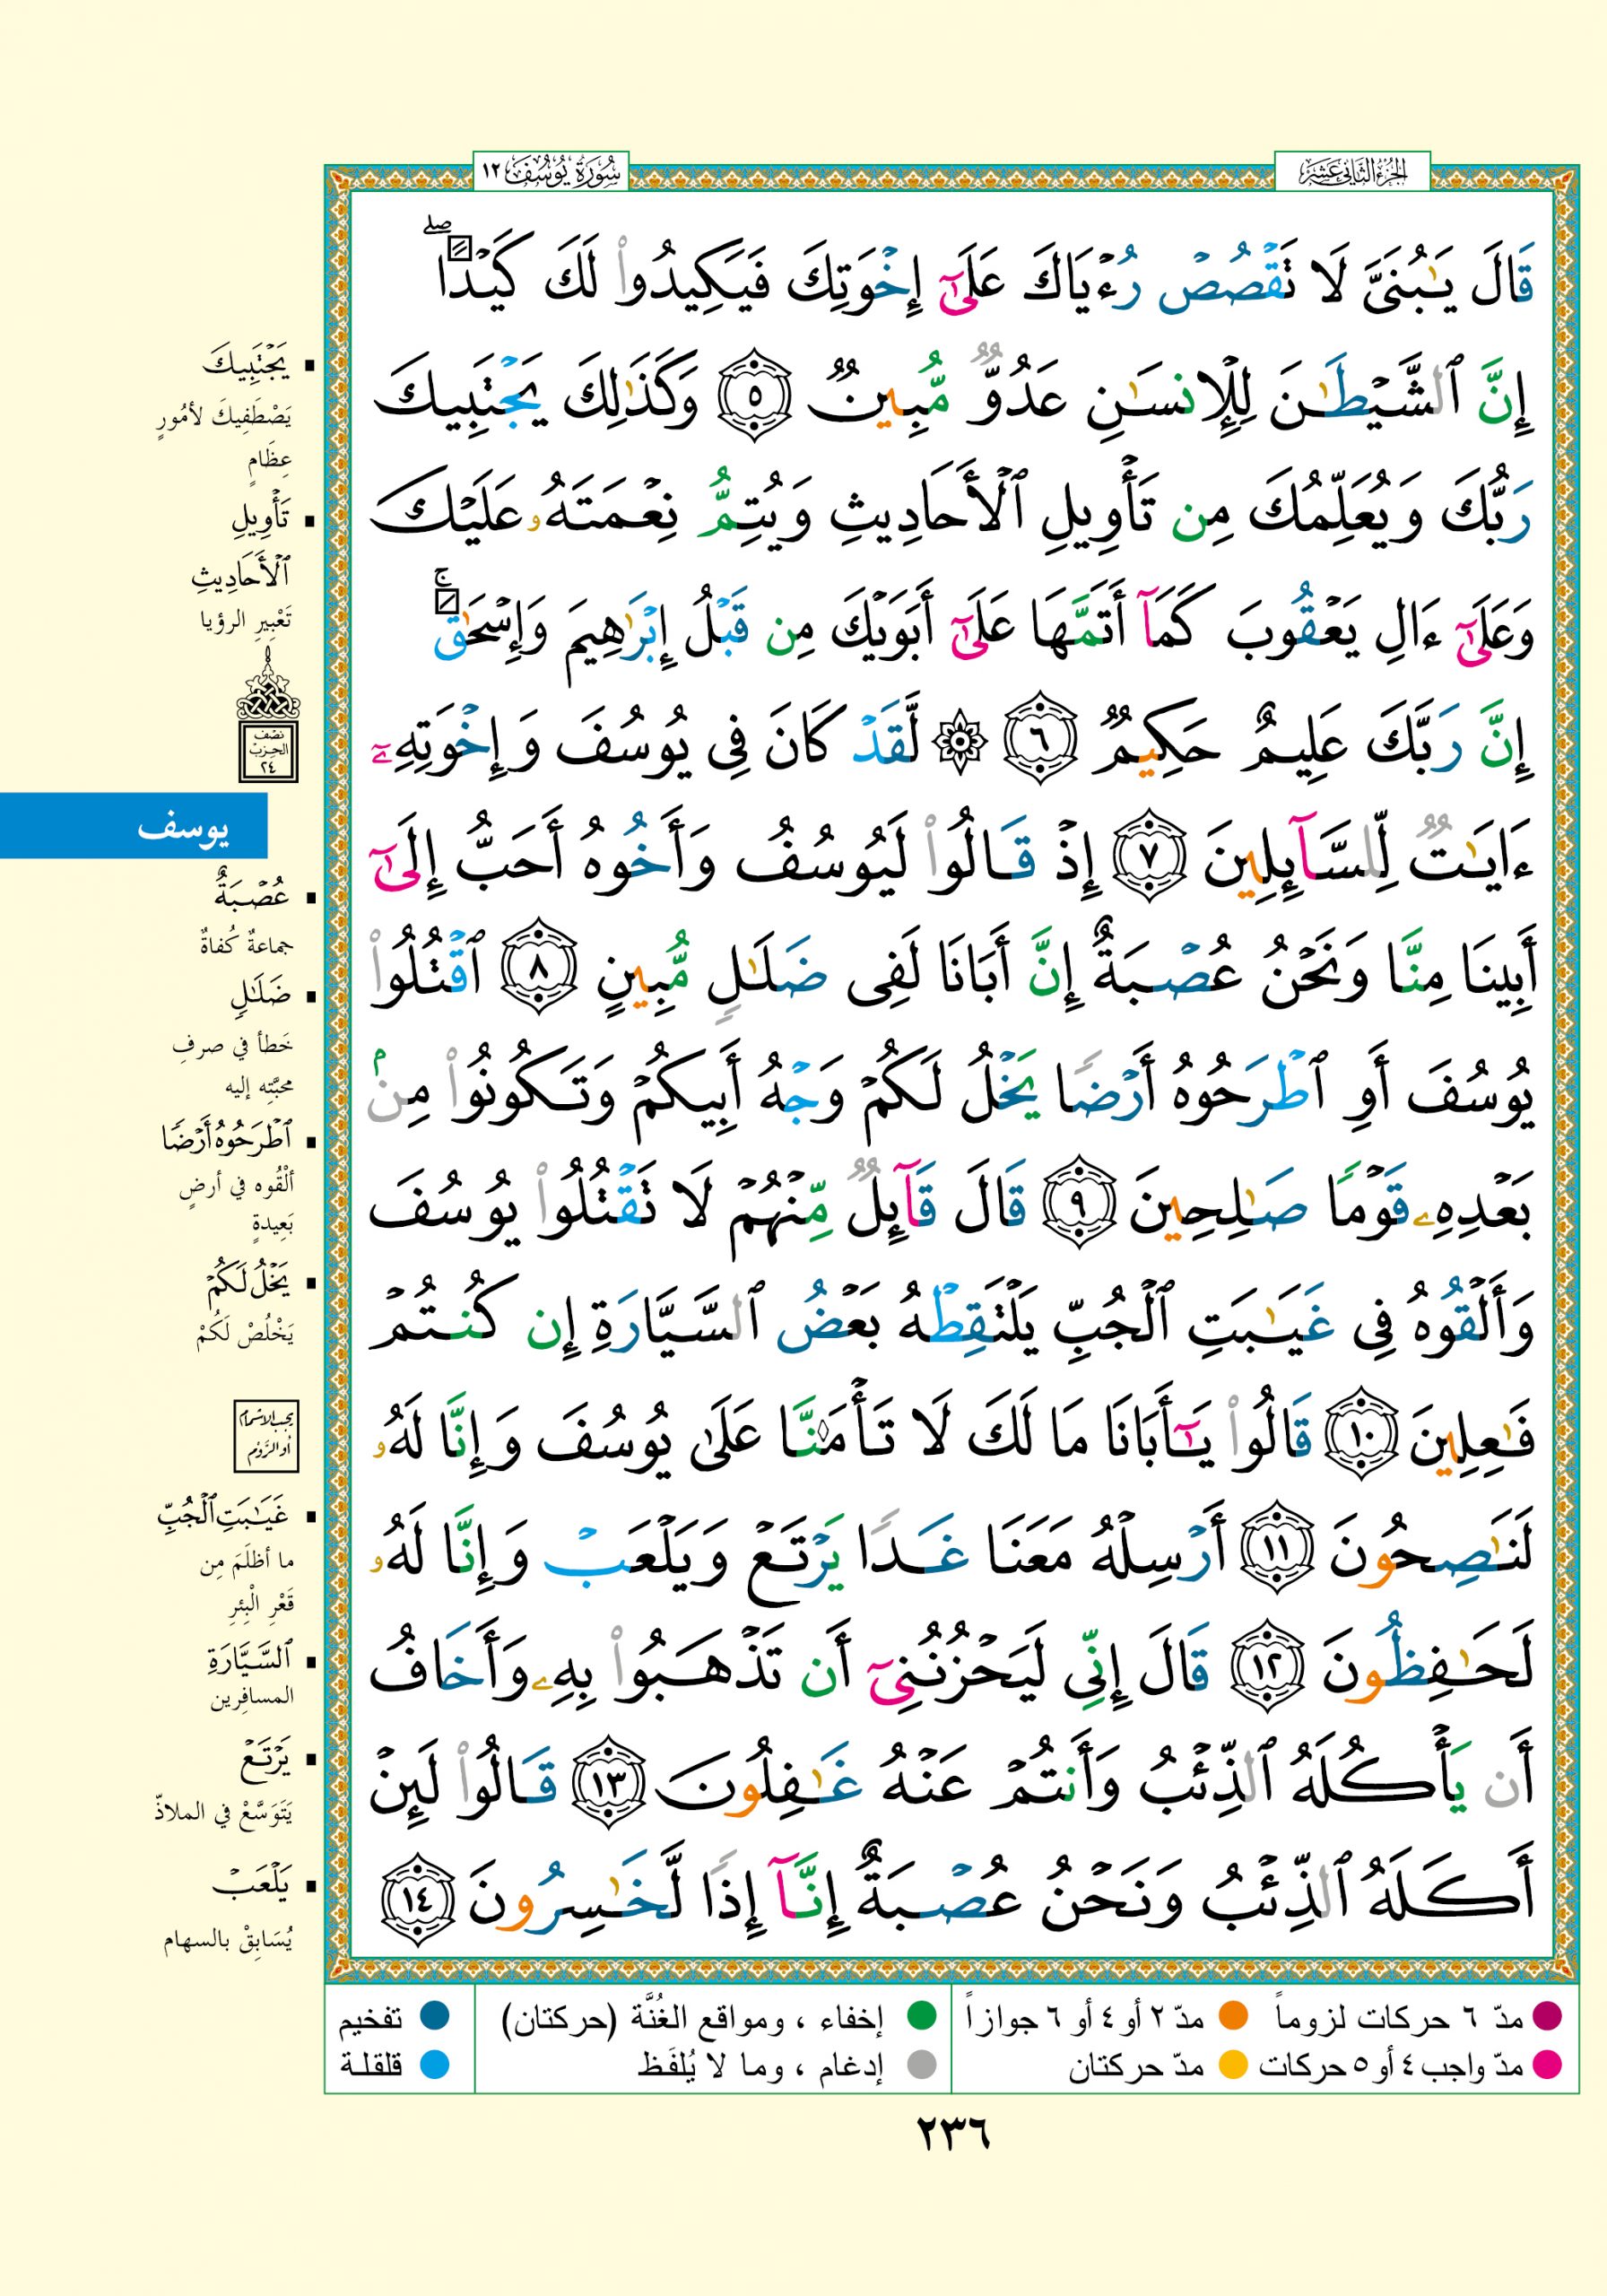 الجزء الثاني عشر
سورة يوسف ١٢
قَالَ يَٰبُنَىَّ لَا تَقۡصُصۡ رُءۡيَاكَ عَلَىٰٓ إِخۡوَتِكَ فَيَكِيدُواْ لَكَ كَيۡدًاۖ
إِنَّ ٱلشَّيۡطَٰنَ لِلۡإِنسَٰنِ عَدُوٌّ مُّبِينٌ ٥ وَكَذَٰلِكَ يَجۡتَبِيكَ
رَبُّكَ وَيُعَلِّمُكَ مِن تَأۡوِيلِ ٱلۡأَحَادِيثِ وَيُتِمُّ نِعۡمَتَهُۥ عَلَيۡكَ
وَعَلَىٰٓ ءَالِ يَعۡقُوبَ كَمَآ أَتَمَّهَا عَلَىٰٓ أَبَوَيۡكَ مِن قَبۡلُ إِبۡرَٰهِيمَ وَإِسۡحَٰقَۚ
إِنَّ رَبَّكَ عَلِيمٌ حَكِيمٌ ٦ ۞ لَّقَدۡ كَانَ فِى يُوسُفَ وَإِخۡوَتِهِۦٓ
ءَايَٰتٌ لِّلسَّآئِلِينَ ٧ إِذۡ قَالُواْ لَيُوسُفُ وَأَخُوهُ أَحَبُّ إِلَىٰٓ
أَبِينَا مِنَّا وَنَحۡنُ عُصۡبَةٌ إِنَّ أَبَانَا لَفِى ضَلَٰلٍ مُّبِينٍ ٨ ٱقۡتُلُواْ
يُوسُفَ أَوِ ٱطۡرَحُوهُ أَرۡضًا يَخۡلُ لَكُمۡ وَجۡهُ أَبِيكُمۡ وَتَكُونُواْ مِنۢ
بَعۡدِهِۦ قَوۡمًا صَٰلِحِينَ ٩ قَالَ قَآئِلٌ مِّنۡهُمۡ لَا تَقۡتُلُواْ يُوسُفَ
وَأَلۡقُوهُ فِى غَيَٰبَتِ ٱلۡجُبِّ يَلۡتَقِطۡهُ بَعۡضُ ٱلسَّيَّارَةِ إِن كُنتُمۡ
فَٰعِلِينَ ١٠ قَالُواْ يَٰٓأَبَانَا مَا لَكَ لَا تَأۡمَ۬نَّا عَلَىٰ يُوسُفَ وَإِنَّا لَهُۥ
لَنَٰصِحُونَ ١١ أَرۡسِلۡهُ مَعَنَا غَدًا يَرۡتَعۡ وَيَلۡعَبۡ وَإِنَّا لَهُۥ
لَحَٰفِظُونَ ١٢ قَالَ إِنِّى لَيَحۡزُنُنِىٓ أَن تَذۡهَبُواْ بِهِۦ وَأَخَافُ
أَن يَأۡكُلَهُ ٱلذِّئۡبُ وَأَنتُمۡ عَنۡهُ غَٰفِلُونَ ١٣ قَالُواْ لَئِنۡ
أَكَلَهُ ٱلذِّئۡبُ وَنَحۡنُ عُصۡبَةٌ إِنَّآ إِذًا لَّخَٰسِرُونَ ١٤
يَجۡتَبِيكَ
يَصْطَفِيكَ لأمُورٍ
عِظَامٍ
تَأۡوِيلِ
ٱلۡأَحَادِيثِ
تَعْبِيرِ الرؤيا
نصف
الحزب
٢٤
يوسف
عُصۡبَةٌ
جماعةٌ كُفاةٌ
ضَلَٰلٍ
خَطأ في صرفِ
محبَّتِه إليه
ٱطۡرَحُوهُ أَرۡضًا
ألْقُوه في أرضٍ
بَعِيدةٍ
يَخۡلُ لَكُمۡ
يَخْلُصْ لَكُمْ
يجب الاشمام
أو الرَّوم
غَيَٰبَتِ ٱلۡجُبِّ
ما أظلَمَ مِن
قَعْرِ الْبِئرِ
ٱلسَّيَّارَةِ
المسافِرين
يَرۡتَعۡ
يَتَوَسَّعْ في الملاذّ
يَلۡعَبۡ
يُسَابِقْ بالسهام
مدّ ٦ حركات لزوماً
مدّ ٢ أو ٤ أو ٦ جوازاً
إخفاء ، ومواقع الغُنَّة (حركتان)
تفخيم
مدّ واجب ٤ أو ٥ حركات
مدّ حركتان
إدغام ، وما لا يُلفَظ
قلقلة
٢٣٦